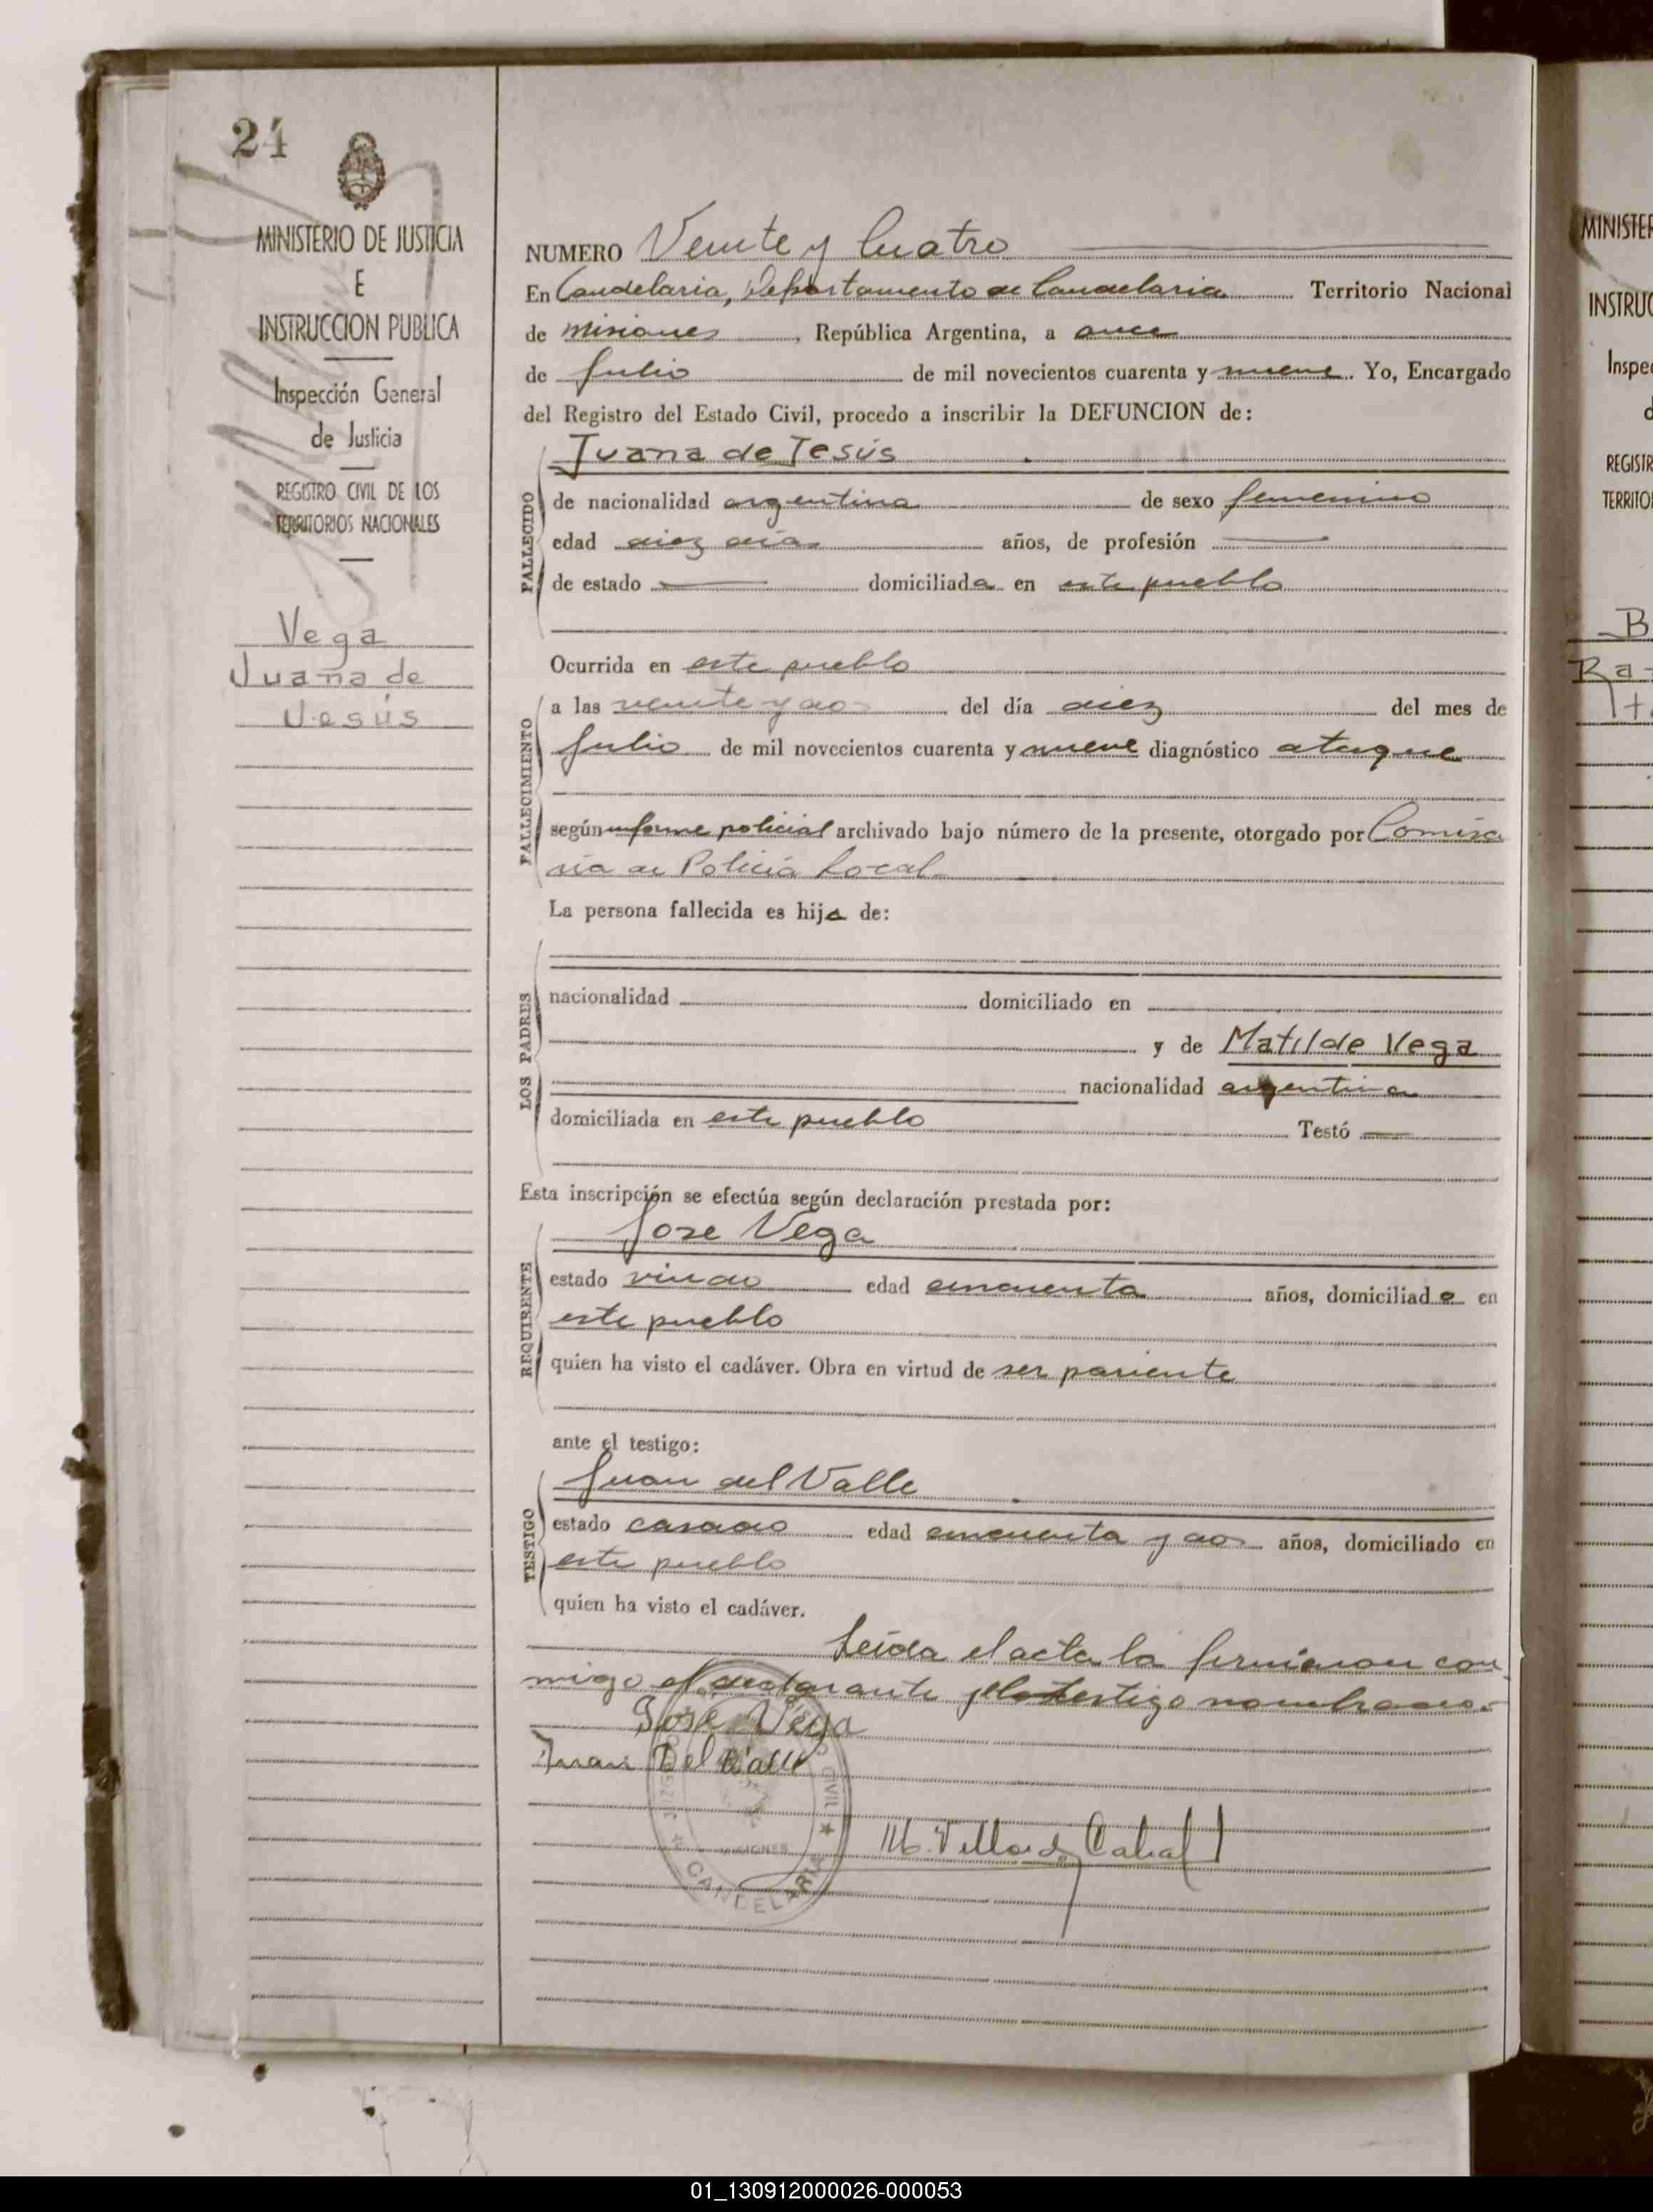 24
MINISTERIO DE JUSTICIA
E
INSTRUCCION PUBLICA
Inspección General
de Justicia
REGISTRO CIVIL DE LOS
TERRITORIOS NACIONALES
Vega
Juana de
Jesús
NUMERO Veinte y Cuatro
En Candelaria, Departamento de Candelaria Territorio Nacional
de Misiones, República Argentina, a once
de Julio de mil novecientos cuarenta y nueve. Yo, Encargado
del Registro del Estado Civil, procedo a inscribir la DEFUNCION de:
Juana de Jesús
FALLECIDO
de nacionalidad argentina de sexo femenino
edad diez días años, de profesión
de estado domiciliada en este pueblo
FALLECIMIENTO
Ocurrida en este pueblo
a las veinte y dos del día diez del mes de
Julio de mil novecientos cuarenta y nueve diagnóstico ataque
según informe policial archivado bajo número de la presente, otorgado por Comisa
ría de Policía Local
LOS PADRES
La persona fallecida es hija de:
nacionalidad domiciliado en
y de Matilde Vega
nacionalidad argentina
domiciliada en este pueblo Testó
Esta inscripción se efectúa según declaración prestada por:
REQUIRENTE
Jose Vega
estado viudo edad cincuenta años, domiciliado en
este pueblo
quien ha visto el cadáver. Obra en virtud de ser pariente
ante el testigo:
TESTIGO
Juan del Valle
estado casado edad cincuenta y dos años, domiciliado en
este pueblo
quien ha visto el cadáver.
Leída el acta la firmaron con
migo el declarante y el testigo nombrados.
José Vega
Juan Del Valle
CIVIL
MISIONES
CANDELARIA
M. Villordy Cabral
MINISTER
INSTRUC
Inspe
d
REGISTR
TERRITO
B
Ra
It
01_130912000026-000053